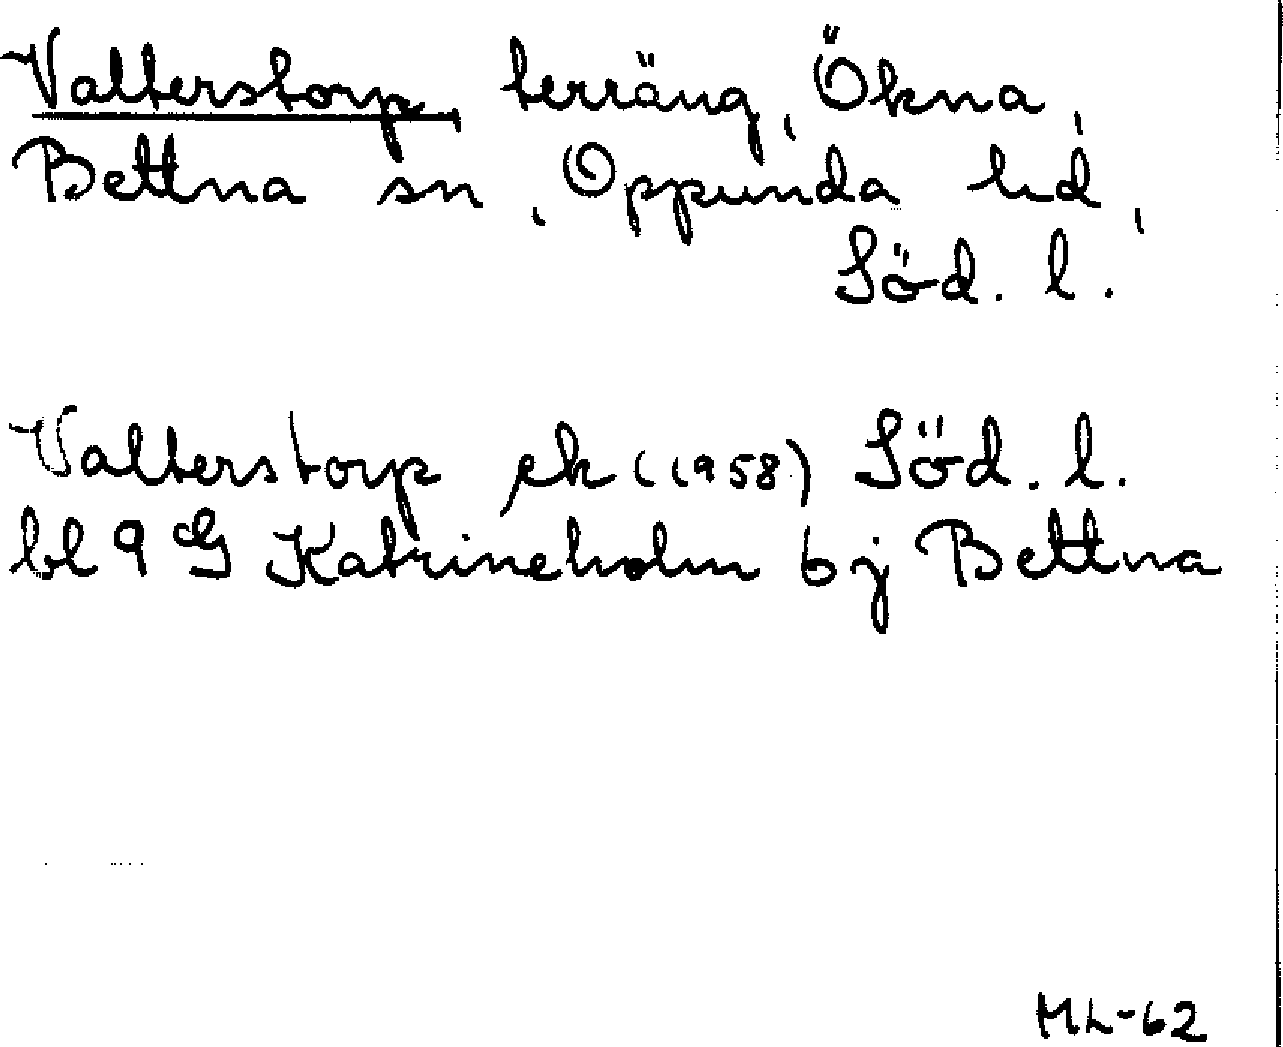 Valterstorp, terräng, Ökna,
Bettna sn, Oppunda hd,
Söd. l.
Valterstorp ek (1958) Söd. l.
bl 9 G Katrineholm 6 j Bettna
ML-62